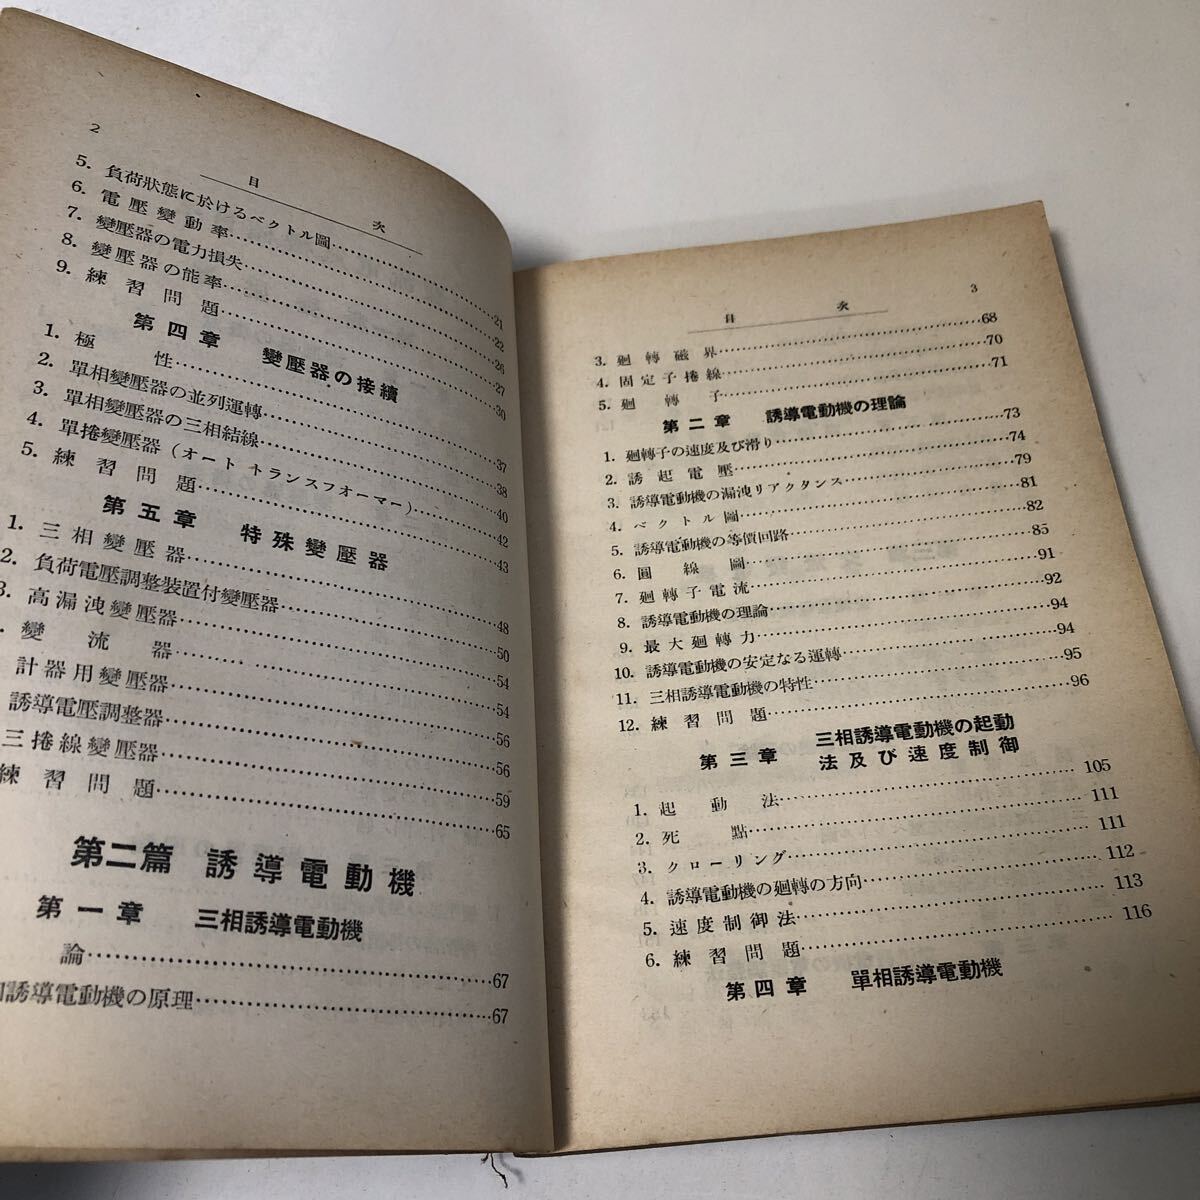 2
目 次
5. 負荷狀態に於けるベクトル圖
6. 電壓變動率……21
7. 變壓器の電力損失……22
8. 變壓器の能率……26
9. 練習問題……27
第四章 變壓器の接續
1. 極性……30
2. 單相變壓器の並列運轉
3. 單相變壓器の三相結線……37
4. 單捲變壓器(オートトランスフオーマー)……38
5. 練習問題……40
第五章 特殊變壓器
1. 三相變壓器……42
2. 負荷電壓調整装置付變壓器……43
3. 高漏洩變壓器……48
變流器……50
計器用變壓器……54
誘導電壓調整器……54
三捲線變壓器……56
練習問題……59
65
第二篇 誘導電動機
第一章 三相誘導電動機
論……67
誘導電動機の原理……67
目 次
3
3. 廻轉磁界……68
4. 固定子捲線……70
5. 廻轉子……71
第二章 誘導電動機の理論
1. 廻轉子の速度及び滑り……73
2. 誘起電壓……74
3. 誘導電動機の漏洩リアクタンス……79
4. ベクトル圖……81
5. 誘導電動機の等價回路……82
6. 圓線圖……85
7. 廻轉子電流……91
8. 誘導電動機の理論……92
9. 最大廻轉力……94
10. 誘導電動機の安定なる運轉……94
11. 三相誘導電動機の特性……95
12. 練習問題……96
第三章 三相誘導電動機の起動
法及び速度制御
1. 起動法……105
2. 死點……111
3. クローリング……111
4. 誘導電動機の廻轉の方向……112
5. 速度制御法……113
6. 練習問題……116
第四章 單相誘導電動機